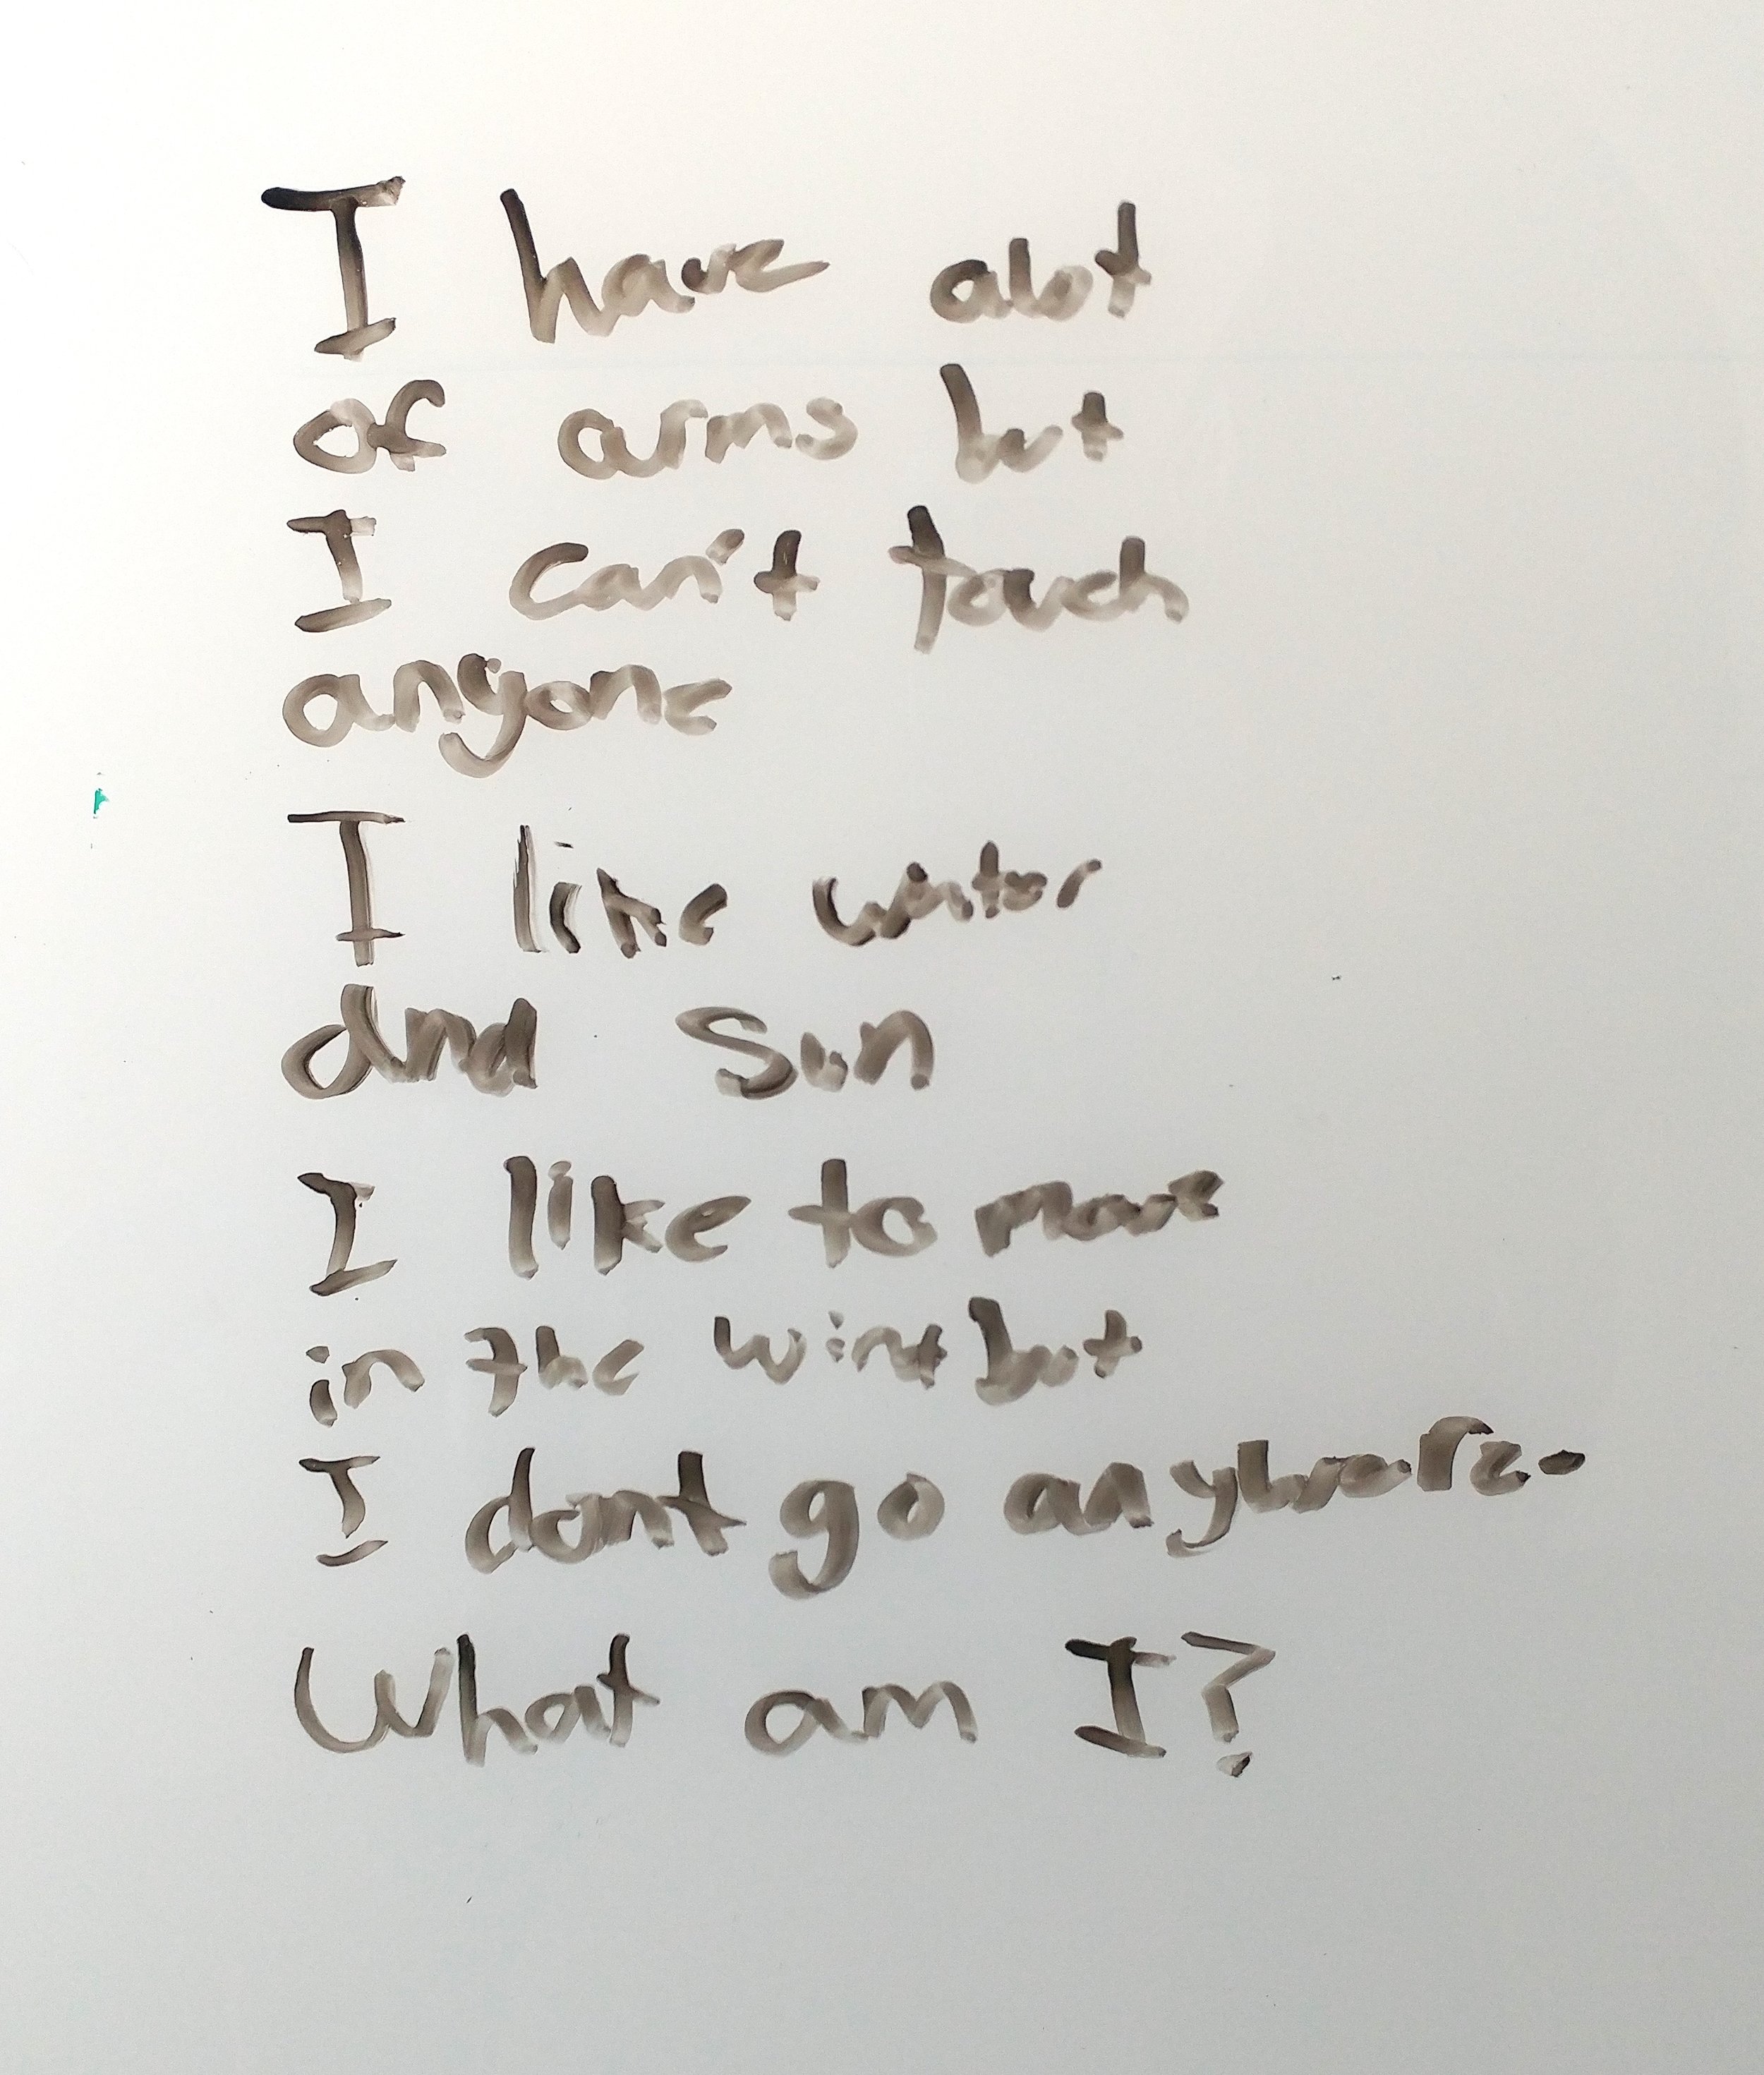 I have alot
of arms but
I can't touch
anyone
I like water
and Sun
I like to move
in the wind but
I dont go anywhere.
What am I?